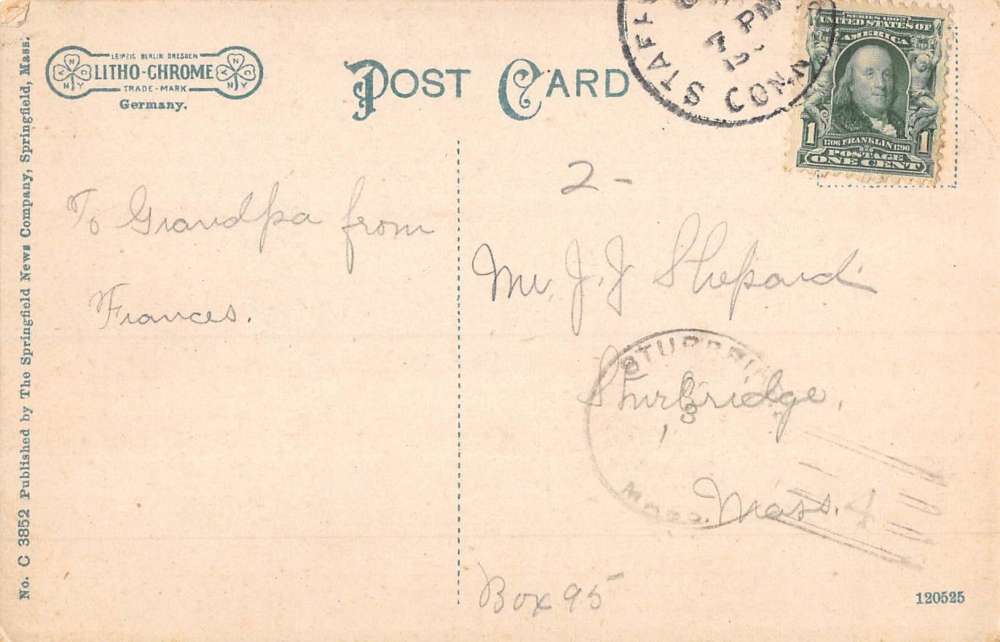 No. C 3852 Published by The Springfield News Company, Springfield, Mass.
LEIPZIG BERLIN DRESDEN
LITHO-CHROME
TRADE-MARK
Germany.
POST CARD
PM
7
CONN.
SERIES 1902
UNITED STATES OF
AMERICA
1 1
1706 FRANKLIN 1790
POSTAGE
ONE CENT
To Grandpa from
Frances.
2-
Mr. J. J. Shepard
Sturbridge,
Mass.
4
Box 95
120525